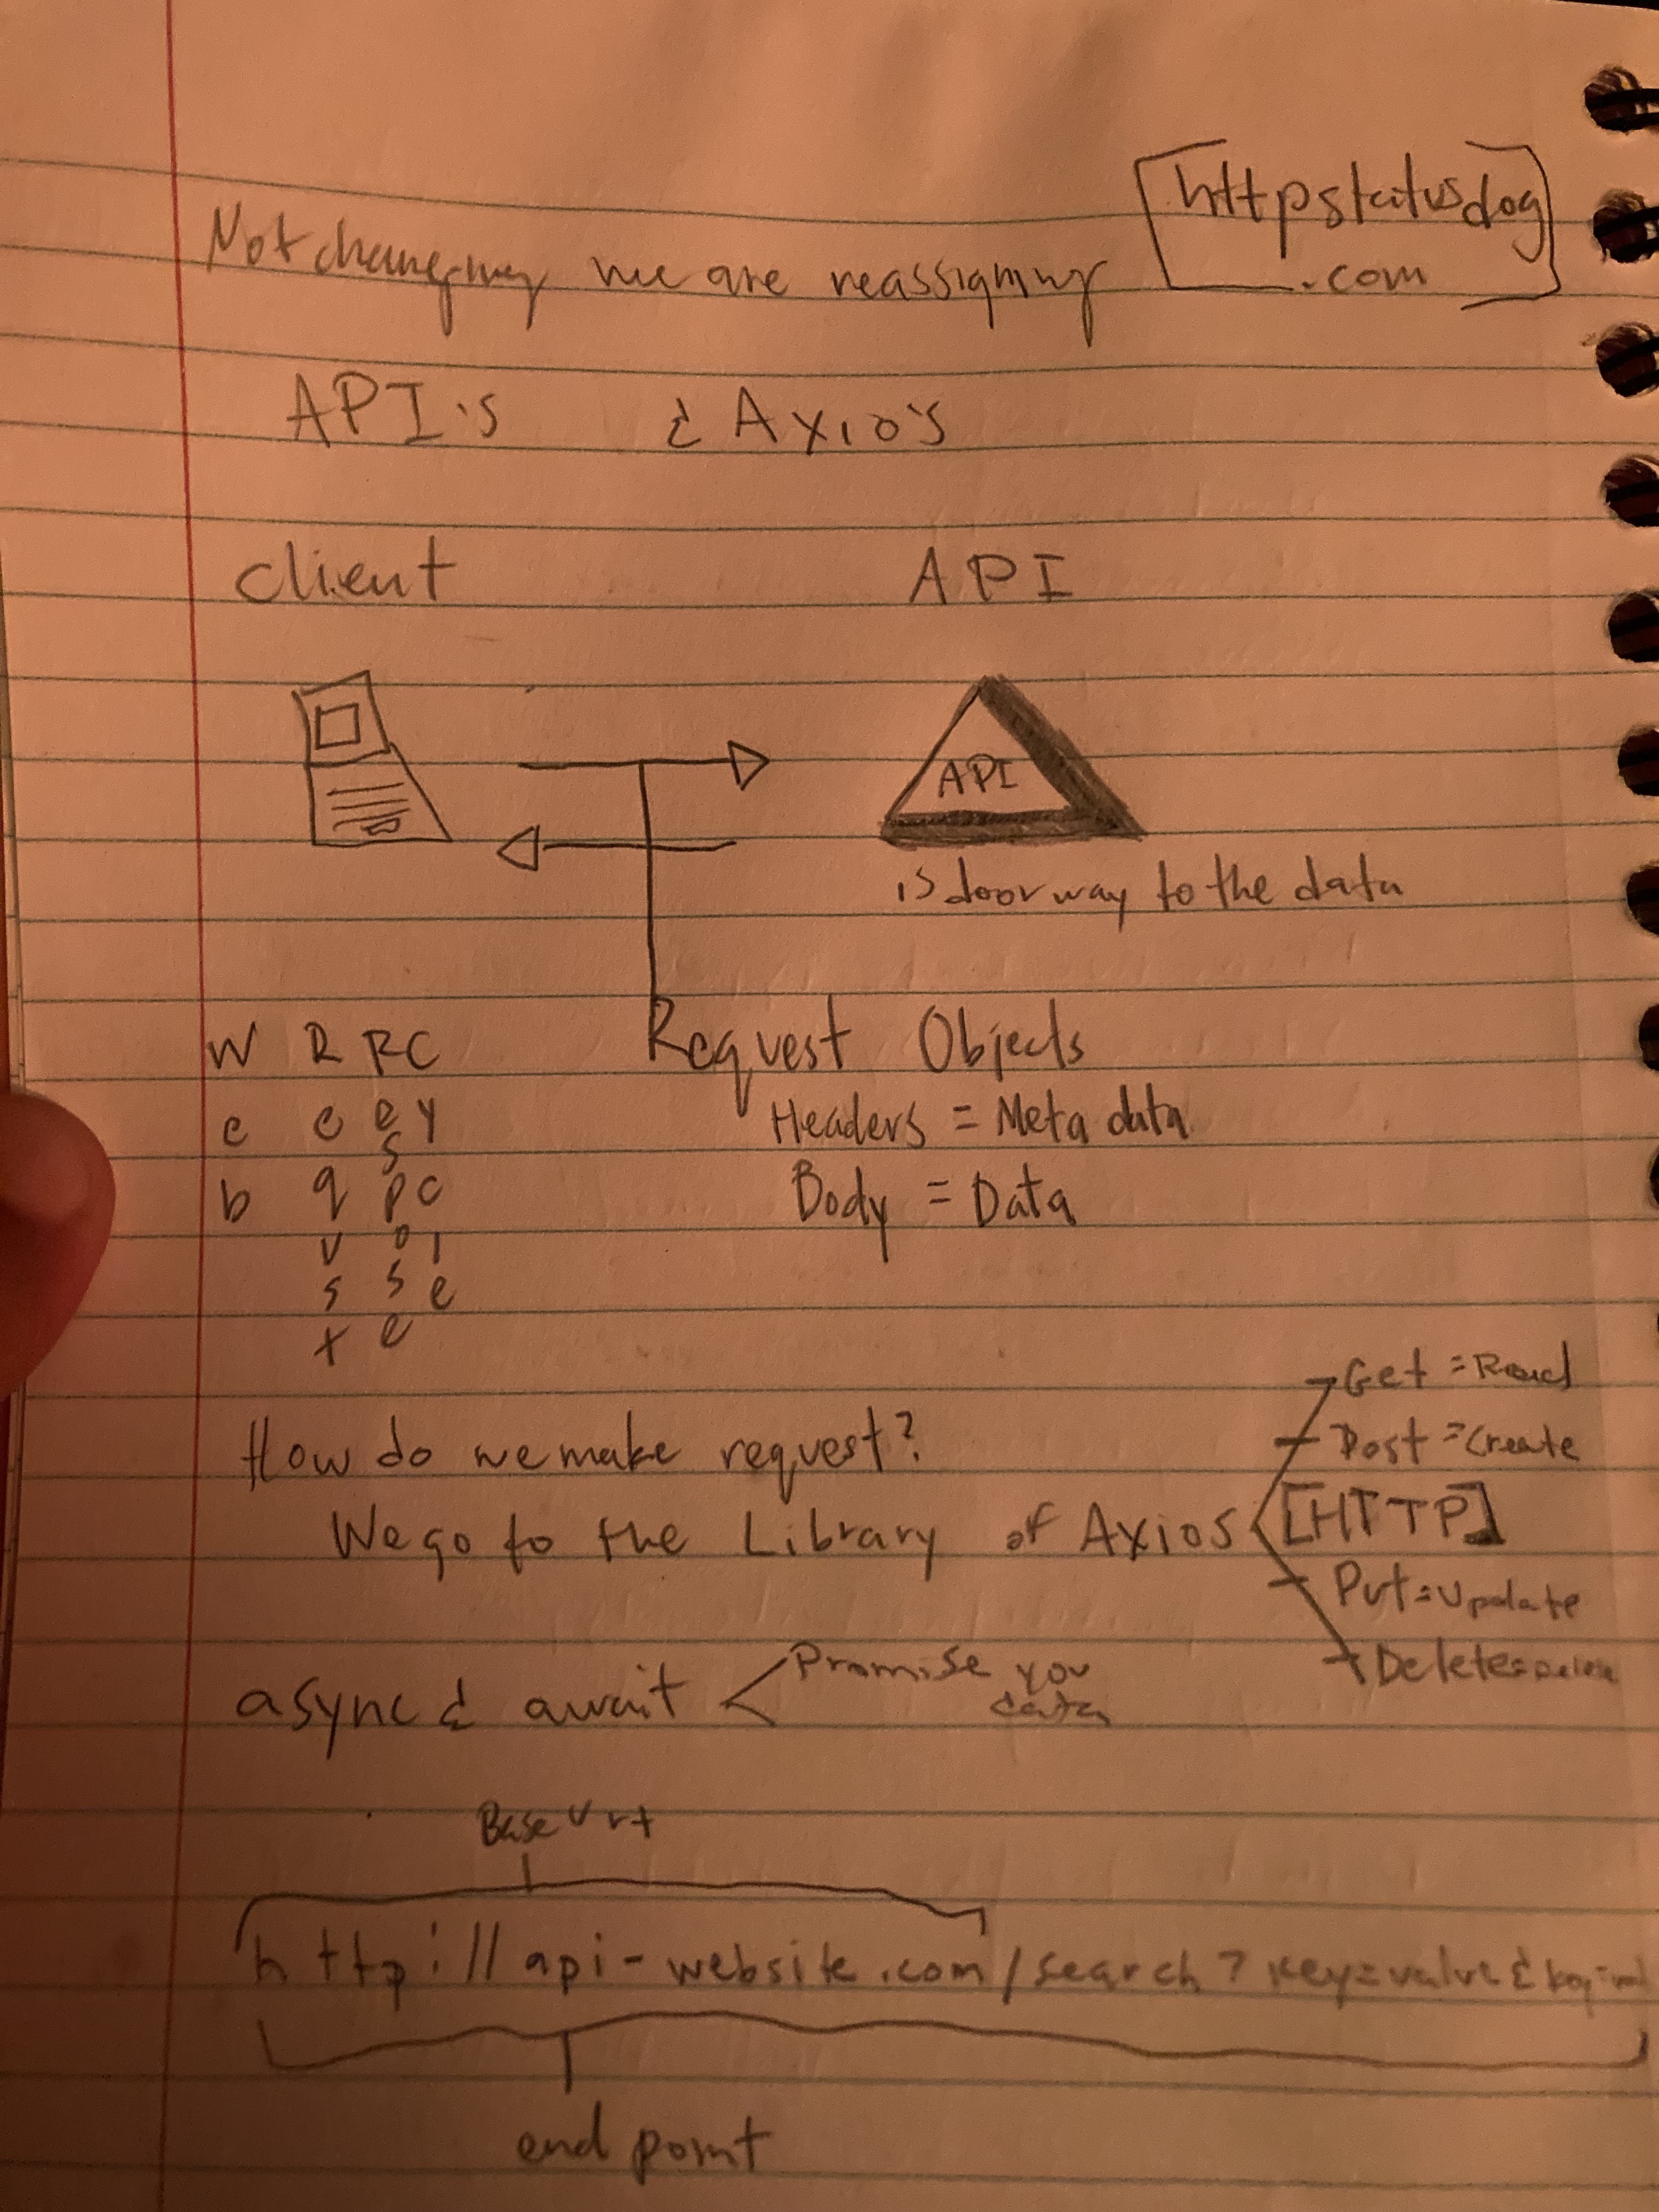 Not changing we are reassigning
[httpstatusdog
.com]
API's & Axio's
client API
API
is doorway to the data
Request Objects
Headers = Meta data
Body = Data
Web Request Response Cycle
How do we make request?
We go to the Library of Axios
Get = Read
Post = Create
[HTTP]
Put = Update
Delete = Delete
async & await < Promise you
data
Base Url
http://api-website.com/search?key=value&key=val
end point